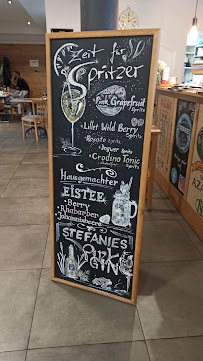 Zeit für
Spritzer
Pink Grapefruit
Spritz
• Lillet Wild Berry
Spritz
Rosato Spritz
• Ingwer Spritz
• Crodino Tonic
Spritz
Hausgemachter
EISTEE
• Berry
• Rhabarber
• Johannisbeere
STEFANIES